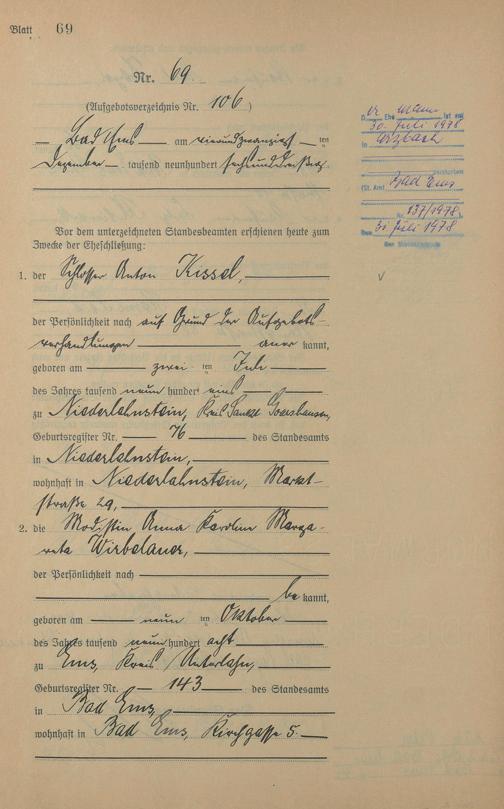 Blatt 69
Nr. 69
(Aufgebotsverzeichnis Nr. 106)
Bad Ems am vierundzwanzigsten
Dezember tausend neunhundert sechsunddreißig
Vor dem unterzeichneten Standesbeamten erschienen heute zum
Zwecke der Eheschließung:
1. der Schlosser Anton Kissel,
der Persönlichkeit nach auf Grund der Aufgebots-
verhandlungen anerkannt,
geboren am zweiten Juli
des Jahres tausend neunhundert eins
zu Niederlahnstein, Kreis Sankt Goarshausen,
Geburtsregister Nr. 76 des Standesamts
in Niederlahnstein,
wohnhaft in Niederlahnstein, Markt-
straße 29,
2. die Modistin Anna Karoline Marga-
reta Wirbelauer,
der Persönlichkeit nach
bekannt,
geboren am neunten Oktober
des Jahres tausend neunhundert acht
zu Ems, Kreis Unterlahn,
Geburtsregister Nr. 143 des Standesamts
in Bad Ems,
wohnhaft in Bad Ems, Kirchgasse 5.
D. Ehemann ist am
30. Juli 1978
in
verstorben
(St. Amt Bad Ems
Nr. 137/1978)
Den 31. Juli 1978
Der Standesbeamte